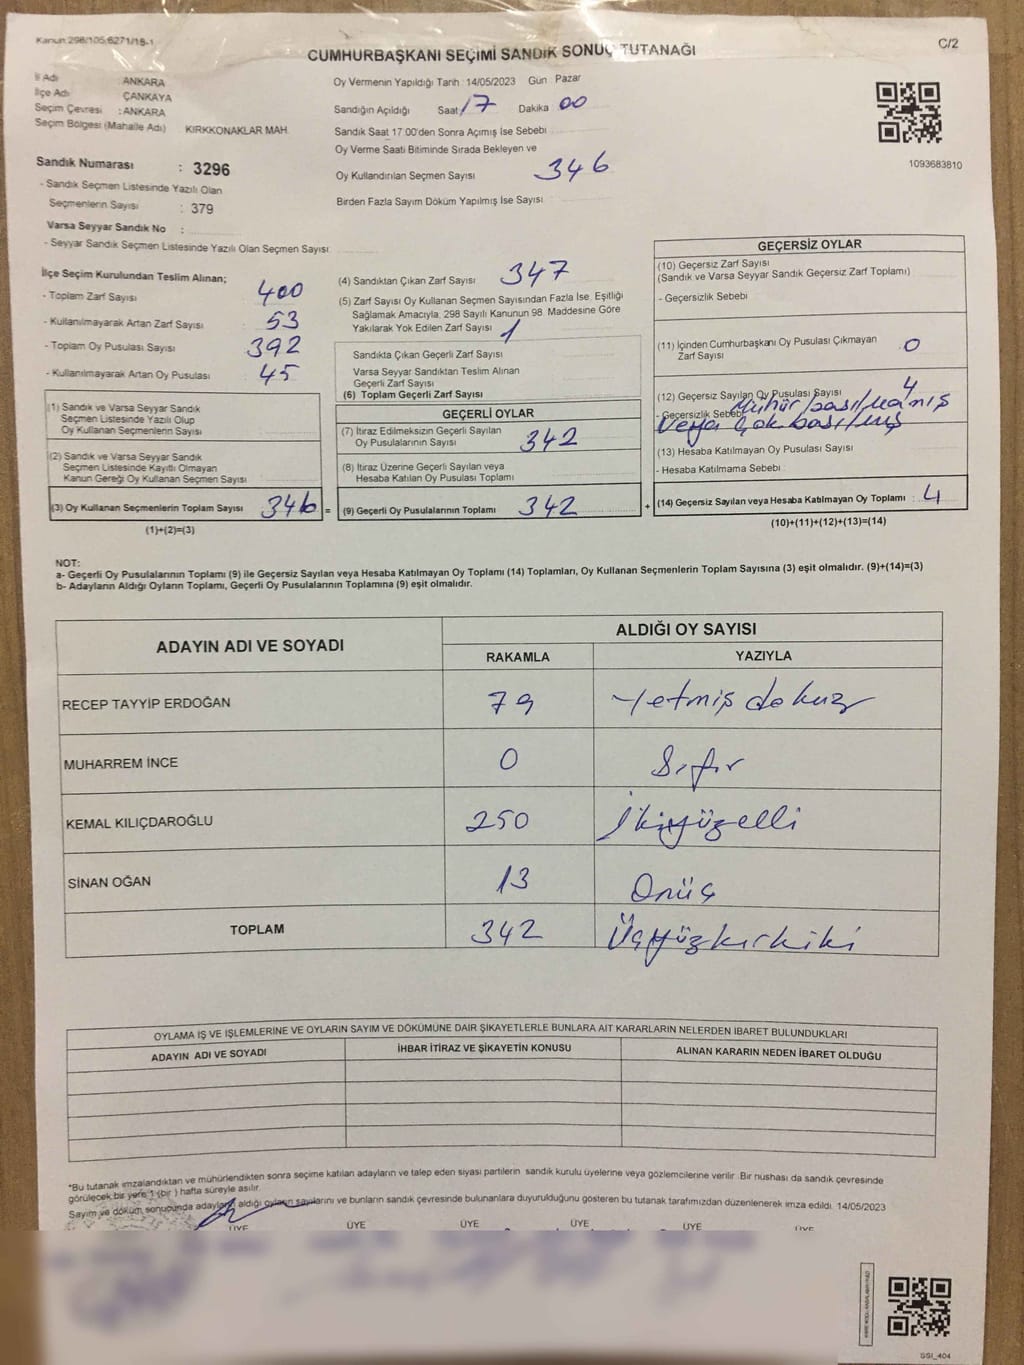 Kanun:298/105;6271/18-1
C/2
CUMHURBAŞKANI SEÇİMİ SANDIK SONUÇ TUTANAĞI
İl Adı : ANKARA
İlçe Adı : ÇANKAYA
Seçim Çevresi : ANKARA
Seçim Bölgesi (Mahalle Adı) KIRKKONAKLAR MAH.
Oy Vermenin Yapıldığı Tarih : 14/05/2023 Gün Pazar
Sandığın Açıldığı Saat 17 Dakika 00
Sandık Saat 17:00'den Sonra Açımış İse Sebebi
Oy Verme Saati Bitiminde Sırada Bekleyen ve
Oy Kullandırılan Seçmen Sayısı 346
Birden Fazla Sayım Döküm Yapılmış İse Sayısı
1093683810
Sandık Numarası : 3296
- Sandık Seçmen Listesinde Yazılı Olan
Seçmenlerin Sayısı : 379
Varsa Seyyar Sandık No :
- Seyyar Sandık Seçmen Listesinde Yazılı Olan Seçmen Sayısı
İlçe Seçim Kurulundan Teslim Alınan;
- Toplam Zarf Sayısı 400
- Kullanılmayarak Artan Zarf Sayısı 53
- Toplam Oy Pusulası Sayısı 392
- Kullanılmayarak Artan Oy Pusulası 45
(1) Sandık ve Varsa Seyyar Sandık
Seçmen Listesinde Yazılı Olup
Oy Kullanan Seçmenlerin Sayısı
(2) Sandık ve Varsa Seyyar Sandık
Seçmen Listesinde Kayıtlı Olmayan
Kanun Gereği Oy Kullanan Seçmen Sayısı
(3) Oy Kullanan Seçmenlerin Toplam Sayısı 346 =
(1)+(2)=(3)
(4) Sandıktan Çıkan Zarf Sayısı 347
(5) Zarf Sayısı Oy Kullanan Seçmen Sayısından Fazla İse, Eşitliği
Sağlamak Amacıyla, 298 Sayılı Kanunun 98. Maddesine Göre
Yakılarak Yok Edilen Zarf Sayısı 1
Sandıkta Çıkan Geçerli Zarf Sayısı
Varsa Seyyar Sandıktan Teslim Alınan
Geçerli Zarf Sayısı
(6) Toplam Geçerli Zarf Sayısı
GEÇERLİ OYLAR
(7) İtiraz Edilmeksizin Geçerli Sayılan
Oy Pusulalarının Sayısı 342
(8) İtiraz Üzerine Geçerli Sayılan veya
Hesaba Katılan Oy Pusulası Toplamı
(9) Geçerli Oy Pusulalarının Toplamı 342 +
GEÇERSİZ OYLAR
(10) Geçersiz Zarf Sayısı
(Sandık ve Varsa Seyyar Sandık Geçersiz Zarf Toplamı)
- Geçersizlik Sebebi
(11) İçinden Cumhurbaşkanı Oy Pusulası Çıkmayan
Zarf Sayısı 0
(12) Geçersiz Sayılan Oy Pusulası Sayısı 4
- Geçersizlik Sebebi Mühür basılmamış
veya çok basılmış
(13) Hesaba Katılmayan Oy Pusulası Sayısı
- Hesaba Katılmama Sebebi
(14) Geçersiz Sayılan veya Hesaba Katılmayan Oy Toplamı : 4
(10)+(11)+(12)+(13)=(14)
NOT:
a- Geçerli Oy Pusulalarının Toplamı (9) ile Geçersiz Sayılan veya Hesaba Katılmayan Oy Toplamı (14) Toplamları, Oy Kullanan Seçmenlerin Toplam Sayısına (3) eşit olmalıdır. (9)+(14)=(3)
b- Adayların Aldığı Oyların Toplamı, Geçerli Oy Pusulalarının Toplamına (9) eşit olmalıdır.
ADAYIN ADI VE SOYADI
ALDIĞI OY SAYISI
RAKAMLA YAZIYLA
RECEP TAYYİP ERDOĞAN 79 Yetmiş dokuz
MUHARREM İNCE 0 Sıfır
KEMAL KILIÇDAROĞLU 250 İkiyüzelli
SİNAN OĞAN 13 Onüç
TOPLAM 342 Üçyüzkırkiki
OYLAMA İŞ VE İŞLEMLERİNE VE OYLARIN SAYIM VE DÖKÜMÜNE DAİR ŞİKAYETLERLE BUNLARA AİT KARARLARIN NELERDEN İBARET BULUNDUKLARI
ADAYIN ADI VE SOYADI İHBAR İTİRAZ VE ŞİKAYETİN KONUSU ALINAN KARARIN NEDEN İBARET OLDUĞU
*Bu tutanak imzalandıktan ve mühürlendikten sonra seçime katılan adayların ve talep eden siyasi partilerin sandık kurulu üyelerine veya gözlemcilerine verilir. Bir nushası da sandık çevresinde
görülecek bir yere 1 (bir ) hafta süreyle asılır.
Sayım ve döküm sonucunda adayların aldığı oyların sayılarını ve bunların sandık çevresinde bulunanlara duyurulduğunu gösteren bu tutanak tarafımızdan düzenlenerek imza edildi. 14/05/2023
ÜYE ÜYE ÜYE ÜYE ÜYE ÜYE
SSI_404